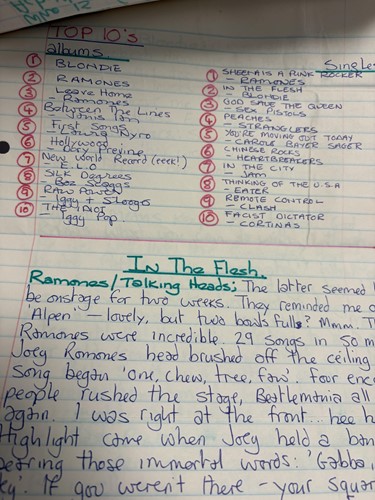 TOP 10's
albums.
① BLONDIE
② RAMONES
③ Leave Home
- Ramones
④ Between The Lines
- Janis Ian
⑤ First Songs
- Laura Nyro
⑥ Hollywood
- Dory Previne
⑦ New World Record (eeek!)
- E.L.O
⑧ SILK Degrees
- Boz Scaggs
⑨ RAW POWER
- Iggy + Stooges
⑩ THE IDIOT
- Iggy Pop
Single
① SHEENA IS A PUNK ROCKER
- RAMONES
② IN THE FLESH
- BLONDIE
③ GOD SAVE THE QUEEN
- SEX PISTOLS
④ PEACHES
- STRANGLERS
⑤ YOU'RE MOVING OUT TODAY
- CAROLE BAYER SAGER
⑥ CHINESE ROCKS
- HEARTBREAKERS
⑦ IN THE CITY
- JAM
⑧ THINKING OF THE U.S.A
- EATER
⑨ REMOTE CONTROL
- CLASH
⑩ FACIST DICTATOR
- CORTINAS
In The Flesh.
Ramones/Talking Heads: The latter seemed
be onstage for two weeks. They reminded me o
'Alpen' - lovely, but two bowls fulls? Mmm. T
Ramones were incredible. 29 songs in 50 m
Joey Ramones head brushed off the ceiling
Song began 'one, chew, tree, faw'. Four enc
people rushed the stage, Beatlemania all
again. I was right at the front... hee h
Highlight came when Joey held a ban
bearing those immortal words: 'Gabba,
ey'. If you weren't there - your squar